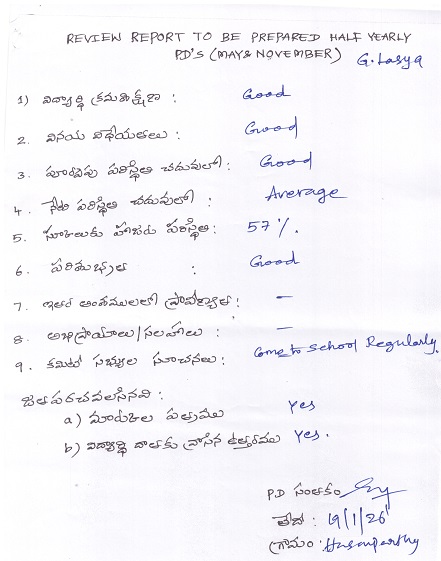 REVIEW REPORT TO BE PREPARED HALF YEARLY
P.D'S (MAY & NOVEMBER) G. Lasya
1) విద్యార్థి క్రమశిక్షణ : Good
2. వినయ విధేయతలు : Good
3. పూర్వపు పరిస్థితి చదువులో : Good
4. నేటి పరిస్థితి చదువులో : Average
5. స్కూలుకు హాజరు పరిస్థితి : 57 %.
6. పరిశుభ్రత : Good
7. ఇతర అంశములలో ప్రావీణ్యత : -
8. అభిప్రాయాలు/సలహాలు : -
9. కమిటీ సభ్యుల సూచనలు : Come to School Regularly.
జతపరచవలసినవి :
a) మార్కుల పత్రము Yes
b) విద్యార్థి దాతకు వ్రాసిన ఉత్తరము Yes.
P.D సంతకం
తేది : 19/1/26
గ్రామం : Hasanparthy